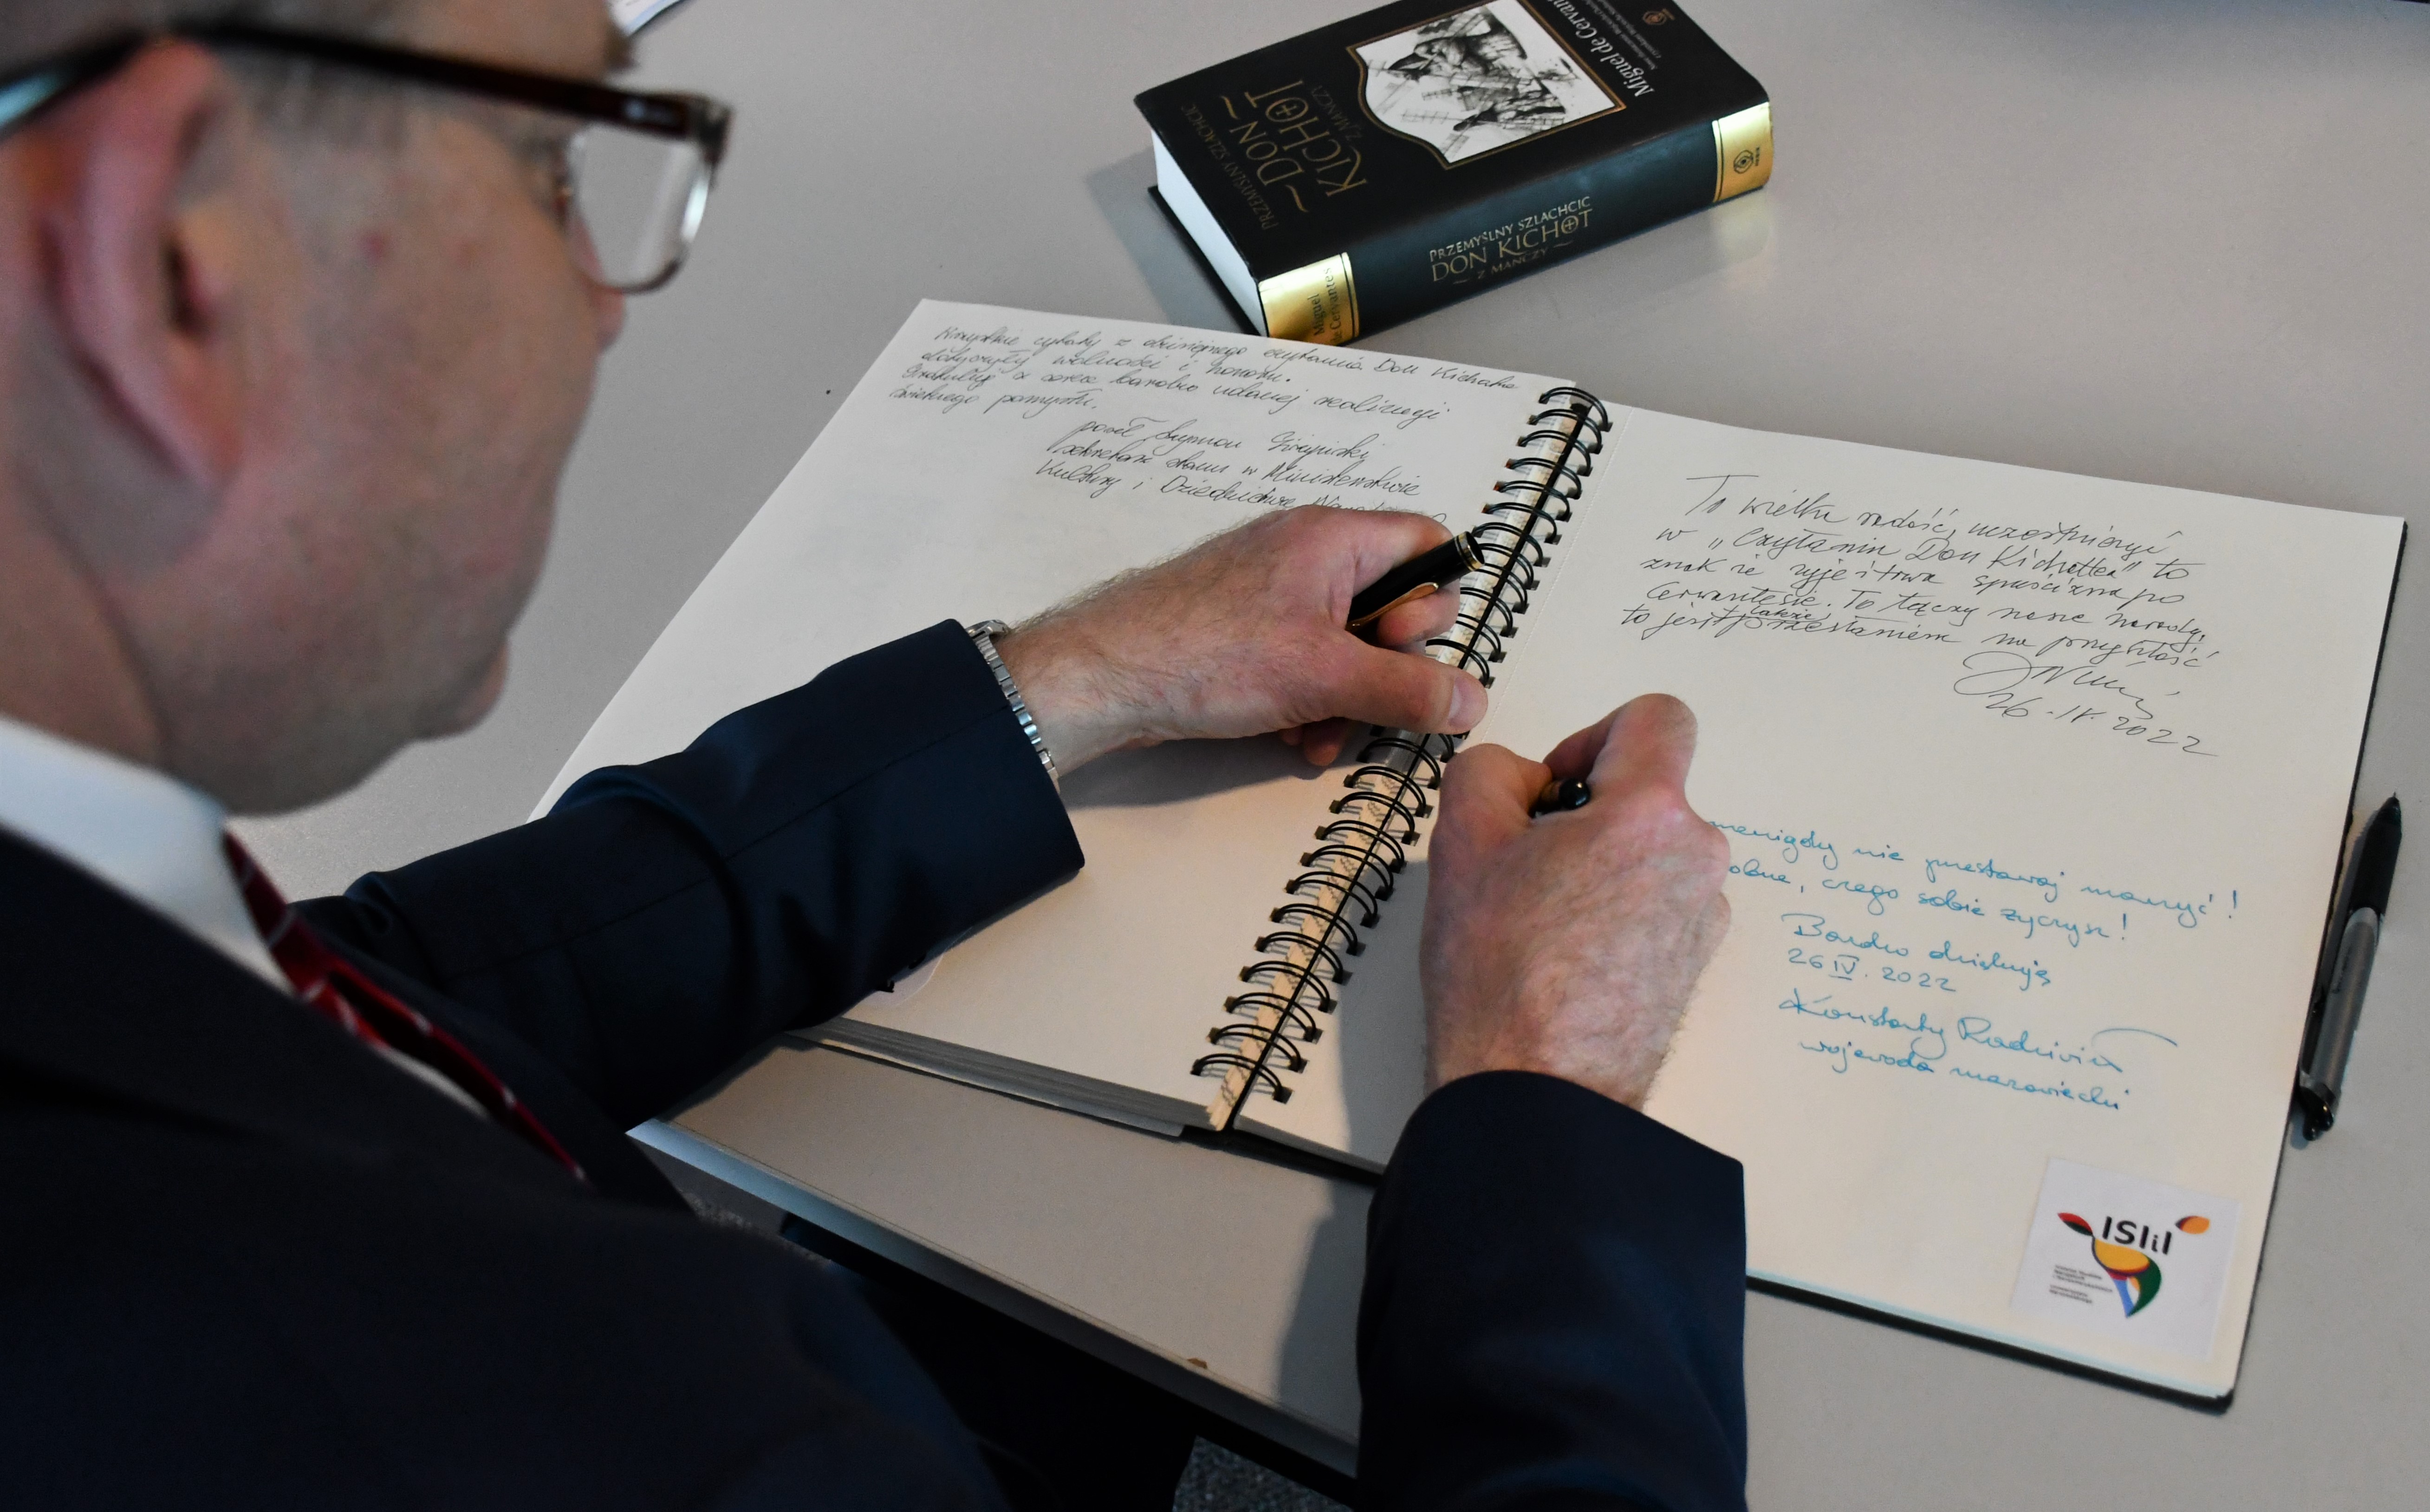 Miguel de Cervantes
PRZEMYŚLNY SZLACHCIC
DON
KICHOT
Z MANCZY
PRZEMYŚLNY SZLACHCIC
DON KICHOT
Z MANCZY
Miguel
de Cervantes
REBIS
Wszystkie cytaty z dzisiejszego czytania Don Kichota
dotyczyły wolności i honoru.
Gratuluję z serca bardzo udanej realizacji
świetnego pomysłu.
poseł Szymon Giżyński
sekretarz stanu w Ministerstwie
Kultury i Dziedzictwa
To wielka radość, uczestniczyć
w „Czytaniu Don Kichotea" to
znak że żyje i trwa spuścizna po
Cervantesie. To łączy nasze narody,
to jest także przesłaniem na przyszłość
26.IV.2022
nie przestawaj marzyć!
czego sobie życzysz!
Bardzo dziękuję
26 IV. 2022
Konstanty Radziwiłł
wojewoda mazowiecki
ISIiI